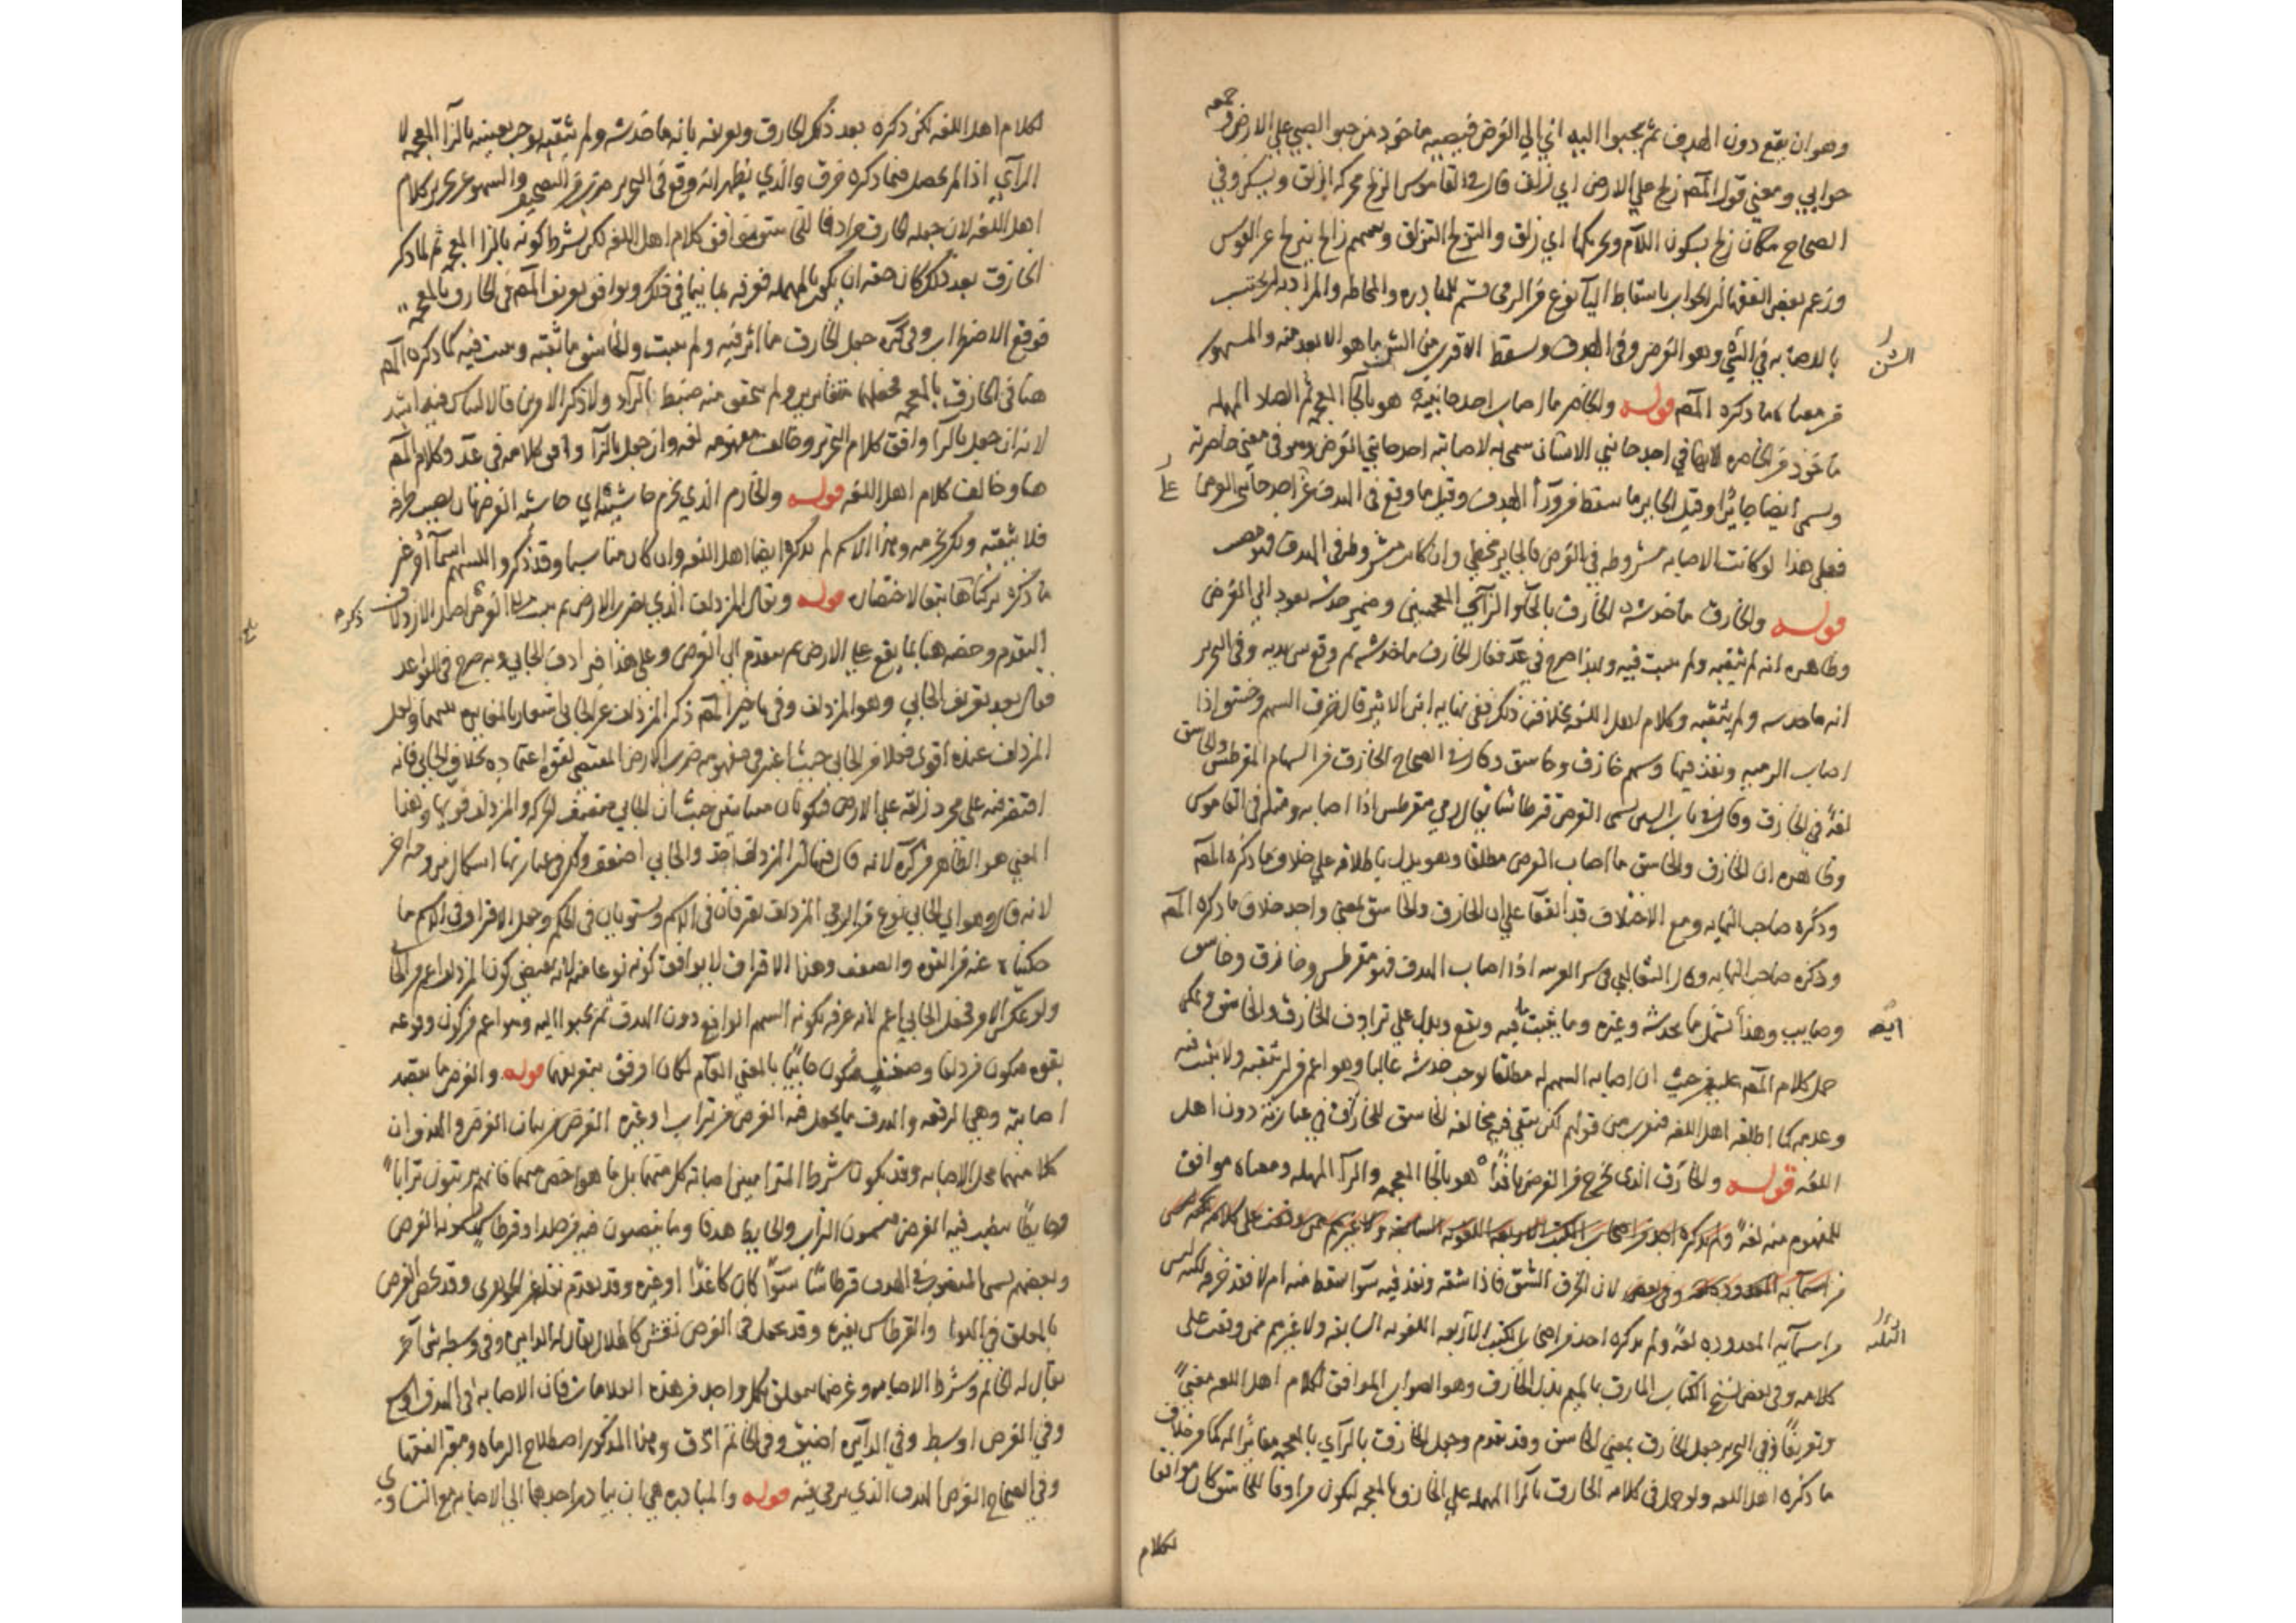 وهو ان يقع دون الهدف ثم يحبوا اليه اي الى الغرض فيصيبه ماخوذ من حبو الصبي على الارض وجمعه
حوابي ومعنى قول المص زلج على الارض اي زلق قال في القاموس الزلج محركة الزلق ويسكن وفي
الصحاح مكان زلج بسكون اللام وتحريكها اي زلق والتزلج التزلق وسهم زالج يتزلج عن القوس
وزعم بعض الفقهاء ان الحواب باسقاط الياء نوع من الرمي قسم للمبادره والمحاطه والمراد به ان يحتسب
بالاصابه في الشن وهو الغرض وفي الهدف ويسقط الاقرب من الشن ما هو الابعد منه والمشهور
الشن
من معناه ما ذكره المص قوله والخاصر ما اصاب احد جانبيه هو بالخاء المعجمه ثم الصاد المهمله
ماخوذ من الخاصره لانها في احد جانبي الانسان سمي به لاصابته احد جانبي الغرض وهو في معنى خاصرته
ويسمى ايضا جايزا وقيل الجايز ما سقط من وراء الهدف وقيل ما وقع في الهدف عن احد جانبي الغرض
على
فعلى هذا لو كانت الاصابه مشروطه في الغرض فالجايز مخطي وان كانت مشروطه في الهدف فهو مصيب
قوله والخازق ما خدشه الخازق بالخاء والزاي المعجمتين وضمير خدشه يعود الى الغرض
وظاهره انه لم يثقبه ولم يثبت فيه وبهذا صرح في عد فقال الخازق ما خدشه ثم وقع بين يديه وفي التحرير
انه ما خدشه ولم يثقبه وكلام اهل اللغه بخلاف ذلك ففي نهايه ابن الاثير قال خزق السهم وخسق اذا
اصاب الرميه ونفذ فيها وسهم خازق وخاسق وقال في الصحاح الخازق من السهام المقرطس والخاسق
لغة في الخازق وقال في باب السين يسمى الغرض قرطاسا يقال رمي فقرطس اذا اصابه ومثله في القاموس
وظاهره ان الخازق والخاسق ما اصاب الغرض مطلقا وهو يدل باطلاقه على خلاف ما ذكره المص
وذكره صاحب النهايه ومع الاختلاف قد اتفقا على ان الخازق والخاسق بمعنى واحد خلاف ما ذكره المص
وذكره صاحب النهايه وقال الثعالبي في سر العربيه اذا اصاب الهدف فهو مقرطس وخازق وخاسق
وصايب وهذا يشمل ما يخدشه وغيره وما يثبت فيه ويقع ويدل على ترادف الخازق والخاسق ويمكن
ايضا
حمل كلام المص عليه من حيث ان اصابه السهم له مطلقا توجب خدشه غالبا وهو اعم من ان يثقبه ولا يثبت فيه
وعدمه كما اطلقه اهل اللغه فهو بين قولهم لكن يبقى فيه مخالفه الخاسق للخازق في عبارته دون اهل
اللغه قوله والخارق الذي يخرج من الغرض نافذا هو بالخاء المعجمه والراء المهمله ومعناه موافق
للمفهوم منه لغة ولم يذكره احد من اصحاب الكتب الاربعه اللغويه السابقه ولا غيرهم ممن وقفت على كلامه
من اسمائه المعدوده لان الخرق الشق فاذا شقه ونفذ فيه سوآ سقط منه ام لا فقد خرقه لكنه ليس
من اسمآيه المعدوده لغة ولم يذكره احد من اصحاب الكتب الاربعه اللغويه السابقه ولا غيرهم ممن وقفت على
كلامه وفي بعض نسخ الكتاب المارق بالميم بدل الخارق وهو الصواب الموافق لكلام اهل اللغه معنىً
وتعريفا وفي التحرير جعل الخارق بمعنى الخاسق وقد تقدم وجعل الخازق بالزاي بالمعجمه مغايرا لهما وخلاف
ما ذكره اهل اللغه ولو جعل في كلامه الخارق بالراء المهمله على الخازق بالمعجمه ليكون مرادفا للخاسق كان موافقا
لكلام
لكلام اهل اللغه لكن ذكره بعد ذلك الخارق وتعريفه بانه ما خدشه ولم يثقبه يوجب تعيينه بالزاء المعجمه لا
الراي اذا لم يحصل فيما ذكره خرق والذي يظهر انه وقع في التحرير ضرب من التصحيف والسهو عن تحرير كلام
اهل اللغه لان جعله الخارق مرادفا للخاسق يوافق كلام اهل اللغه لكن بشرط كونه بالزاء المعجمه ثم لما ذكر
الخازق بعد ذلك كان حقه ان يكون بالمهمله فعرفه بما ينافي ذلك ويوافق تعريف المص في الخازق بالمعجمه
فوقع الاضطراب وفي كره جعل الخارق ما اثر فيه ولم يثبت والخاسق ما ثقبه وثبت فيه كما ذكره المص
هنا في الخازق بالمعجمه فجعلهما متغايرين ولم يتحقق منه ضبط الراء ولا ذكر الامرين فالالتباس فيه اشد
لانه ان جعل بالرآ وافق كلام التحرير وخالف مفهومه لغه وان جعل بالزآ وافق كلامه في عد وكلام المص
هنا وخالف كلام اهل اللغه قوله والخارم الذي يخرم حاشيته اي حاشيه الغرض بان يصيب طرفه
فلا يثقبه ولكن يخرمه وهذا الاسم لم يذكره ايضا اهل اللغه وان كان مناسبا وقد ذكروا للسهم اسمآ اخر غير
ما ذكر تركناها تبعا لاختصار قوله ويقال المزدلف الذي يضرب الارض ثم يثب الى الغرض اصل الازدلاف
ذكره
التقدم وخصه هنا بما يقع على الارض ثم يتقدم الى الغرض وعلى هذا فيرادف الحابي وبه صرح في القواعد
فقال بعد تعريف الحابي وهو المزدلف وفي تاخير المص ذكر المزدلف عن الحابي اشعار بالمغايره بينهما ولعل
المزدلف عنده اقوى فعلا من الحابي حيث اعتبر في مفهومه ضرب الارض المقتضي لقوة اعتماده بخلاف الحابي فانه
اقتصر منه على مجرد زلقه على الارض فيكونان متباينين حيث ان الحابي ضعيف الحركه والمزدلف قويها وهذا
المعنى هو الظاهر من كره لانه قال فيها ان المزدلف احد والحابي اضعف ولكن في عبارتها اشكال من وجه اخر
لانه قال وهو اي الحابي نوع من الرمي المزدلف يفترقان في الاسم ويستويان في الحكم وجعل الافتراق في الاسم ما
حكيناه عنه من القوه والضعف وهذا الافتراق لا يوافق كونه نوعا منه لانه يقتضي كون المزدلف اعم من الحابي
ولو عكس الامر فجعل الحابي اعم لانه عرفه بكونه السهم الواقع دون الهدف ثم يحبوا اليه وهو اعم من كون وقوعه
بقوه فيكون مزدلفا وضعف فيكون حابيا بالمعنى العام لكان اوفق بتعريفهما قوله والغرض ما يقصد
اصابته وهي الرقعه والهدف ما يجعل فيه الغرض من تراب او غيره الغرض من بيان الغرض والهدف ان
كلا منهما محل الاصابه وقد يكون شرط المتراميين اصابه كل منهما بل ما هو اخص منهما فانهم يرتبون ترابا
وحايطا ينصب فيه الغرض فيسمون التراب والحايط هدفا وما ينصبون فيه من جلد او قرطاس يسمونه الغرض
وبعضهم يسمي المنصوب في الهدف قرطاسا سوآ كان كاغذا او غيره وقد تقدم نقله عن الجوهري وقد يخص الغرض
بالمعلق في الهواء والقرطاس بغيره وقد يجعل في الغرض نقش كالهلال يقال له الدايره وفي وسطه شي آخر
يقال له الخاتم وشرط الاصابه وغرضها يتعلق بكل واحد من هذه العلامات فان الاصابه في الهدف اوسع
وفي الغرض اوسط وفي الدآيره اضيق وفي الخاتم ادق وهذا المذكور اصطلاح الرماه وبعض الفقها
وفي الصحاح الغرض الهدف الذي يرمى فيه قوله والمبادره هي ان يبادر احدهما الى الاصابه مع التساوي